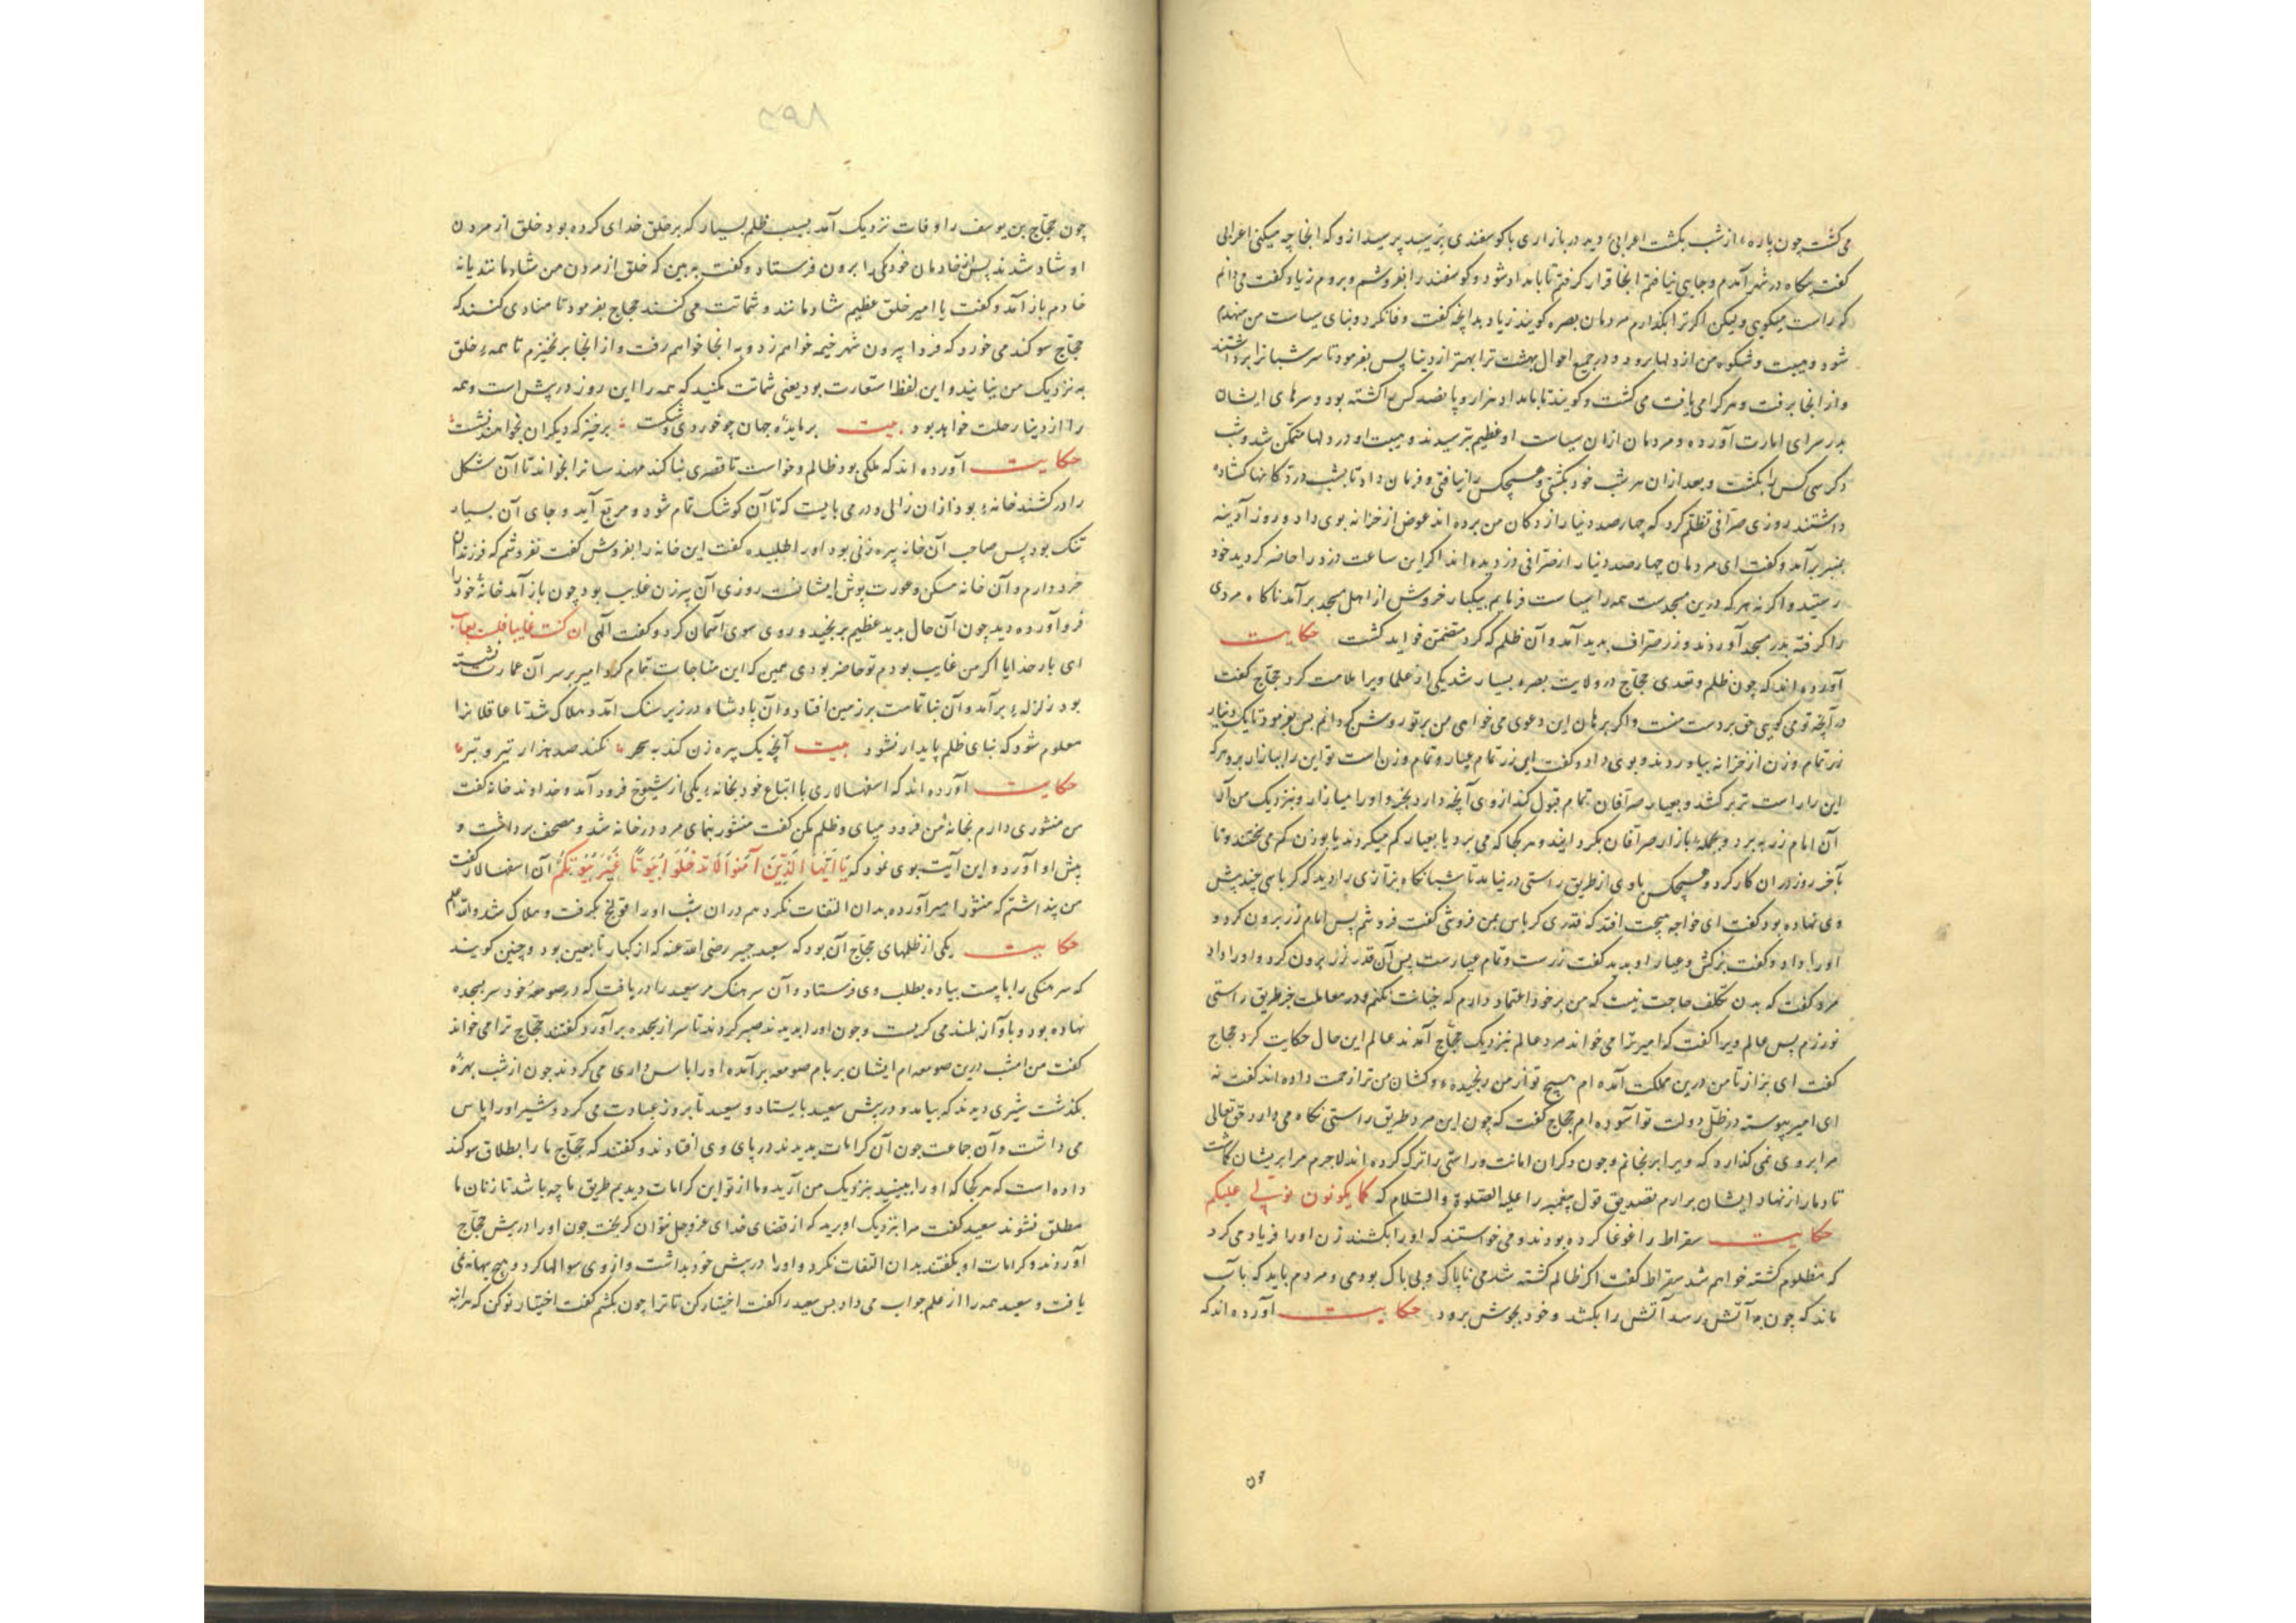 می‌گشت چون پاره‌ء از شب بگشت اعرابی دید در بازاری با گوسفندی پرسید از و که اینجا چه میکنی اعرابی
گفت بیگاه در شهر آمدم و جایی نیافتم اینجا قرار گرفتم تا بامداد شود و گوسفند را بفروشم و بروم زیاد گفت می‌دانم
که راست میگویی ولیکن اگر ترا بگذارم مردمان بصره گویند زیاد بدانچه گفت وفا نکرد و بنای سیاست من منهدم
شود و هیبت و شکوه من از دلها برود و در جمیع احوال بهشت ترا بهتر از دنیا پس بفرمود تا سر شبانرا برداشتند
و از آنجا برفت و هر کرا می‌یافت می‌کشت و گویند تا بامداد هزار و پانصد کس را کشته بود و سرهای ایشان
بدر سرای امارت آورده و مردمان ازان سیاست او عظیم بترسیدند و هیبت او در دلها متمکن شد و شب
دگر سی کس را بکشت و بعد ازان هر شب خود بگشتی و هیچکس را نیافتی و فرمان داد تا بشب در دکانها گشاده
داشتند روزی صرافی تظلم کرد که چهار صد دینار از دکان من برده‌اند عوض از خزانه بوی داد و روز آدینه
بمنبر برآمد و گفت ای مردمان چهار صد دینار از صرافی دزدیده‌اند اگر این ساعت دزد را حاضر کردید خود
رستید و اگر نه هر که درین مسجدست همه را سیاست فرمایم بیکبار خروش از اهل مسجد برآمد ناگاه مردی
را گرفته بدر مسجد آوردند و زر صراف بدید آمد و آن ظلم که کرد متضمن فواید گشت حکایت
آورده‌اند که چون ظلم و تعدی حجاج در ولایت بصره بسیار شد یکی از علما ویرا ملامت کرد حجاج گفت
در آنچه تو می‌گویی حق بر دست منست و اگر برهان این دعوی می‌خواهی من بر تو روشن گردانم پس بفرمود تا یک دینار
زر تمام وزن از خزانه بیاوردند و بوی داد و گفت این زر تمام عیار و تمام وزن است تو این را ببازار بر و هر که
این را راست تر برکشد و بعیار صرافان تمام قبول کند از وی آنچه دارد بخر و او را میازار و بنزدیک من آر
آن امام زر ببرد و بجملهء بازار صرافان بگردانید و هر کجا که می‌برد یا بعیار کم میکردند یا بوزن کم می‌سختند و تا
بآخر روز در ان کار کرد و هیچکس با وی از طریق راستی در نیامد تا شبانگاه بزازی را دید که کرباسی چند پیش
وی نهاده بود گفت ای خواجه هیچت افتد که قدری کرباس بمن فروشی گفت فروشم پس امام زر برون کرد و
او را داد و گفت برکش و عیار او بدید گفت زرست و تمام عیارست پس آن قدر زر برون کرد و او را داد
مرد گفت که بدین تکلف حاجت نیست که من بر خود اعتماد دارم که خیانت نکنم و در معاملت جز طریق راستی
نورزم پس عالم ویرا گفت که امیر ترا می‌خواند مرد عالم بنزدیک حجاج آمدند عالم این حال حکایت کرد حجاج
گفت ای بزاز تا من درین مملکت آمده‌ام هیچ تو از من رنجیده‌ء و کسان من ترا زحمت داده‌اند گفت نه
ای امیر پیوسته در ظل دولت تو آسوده‌ام حجاج گفت که چون این مرد طریق راستی نگاه می‌دارد حق تعالی
مرا بروی نمی‌گذارد که ویرا برنجانم و چون دگران امانت و راستی را ترک کرده‌اند لاجرم مرا بریشان گماشت
تا دمار از نهاد ایشان برارم تصدیق قول پیغمبر را علیه الصلوة والسلام که کما یکونون یولی علیکم
حکایت سقراط را غوغا کرده بودند و می‌خواستند که او را بکشند زن او را فریاد می‌کرد
که مظلوم کشته خواهم شد سقراط گفت اگر ظالم کشته شدمی ناپاک و بی باک بودمی و مردم باید که بآب
ماند که چون به آتش رسد آتش را بکشد و خود بجوش برود حکایت آورده‌اند که
۸۹۵
چون حجاج بن یوسف را وفات نزدیک آمد بسبب ظلم بسیار که بر خلق خدای کرده بود خلق از مردن
او شاد شدند پس از خادمان خود یکی را برون فرستاد و گفت به بین که خلق از مردن من شادمانند یا نه
خادم باز آمد و گفت یا امیر خلق عظیم شادمانند و شماتت می‌کنند حجاج بفرمود تا منادی کنند که
حجاج سوگند می‌خورد که فردا بیرون شهر خیمه خواهم زد و به آنجا خواهم رفت و از آنجا برنخیزم تا همهء خلق
به نزدیک من نیایند و این لفظ استعارت بود یعنی شماتت مکنید که همه را این روز در پیش است و همه
را از دنیا رحلت خواهد بود بیت بر مایدهٔ جهان چو خوردی و شکست برخیز که دیگران نخواهند نشست
حکایت آورده‌اند که ملکی بود ظالم و خواست تا قصری بنا کند مهندسانرا بخواند تا آن شکل
را درکشند خانهء بود ازان زالی و در می‌بایست که تا آن کوشک تمام شود و مربع آید و جای آن بسیار
تنگ بود پس صاحب آن خانه پیره زنی بود او را طلبیده گفت این خانه را بفروش گفت نفروشم که فرزندان
خرد دارم و آن خانه مسکن و عورت پوش ایشانست روزی آن پیرزن غایب بود چون باز آمد خانهٔ خود را
فرو آورده دید چون آن حال بدید عظیم برنجید و روی سوی آسمان کرد و گفت الهی ان کنت غایبا فلست بغایب
ای بار خدایا اگر من غایب بودم تو حاضر بودی همین که این مناجات تمام کرد امیر بر سر آن عمارت نشسته
بود زلزلهء برآمد و آن بنا تمامت بر زمین افتاد و آن پادشاه در زیر سنگ آمد و هلاک شد تا عاقلانرا
معلوم شود که بنای ظلم پایدار نشود بیت آنچه یک پیره زن کند به سحر نکند صد هزار تیر و تبر
حکایت آورده‌اند که اسفهسالاری با اتباع خود بخانهء یکی از شیوخ فرود آمد و خداوند خانه گفت
من منشوری دارم بخانهٔ من فرود میای و ظلم مکن گفت منشور بنمای مرد در خانه شد و مصحف برداشت و
پیش او آورد و این آیت بوی نمود که یَا اَیُّهَا الَّذِینَ آمَنُوا لَا تَدْخُلُوا بُیُوتًا غَیْرَ بُیُوتِکُمْ آن اسفهسالار گفت
من پنداشتم که منشور امیر آورده بدان التفات نکرد هم دران شب او را قولنج بگرفت و هلاک شد والله اعلم
حکایت یکی از ظلمهای حجاج آن بود که سعید جبیر رضی الله عنه که از کبار تابعین بود و چنین گویند
که سرهنگی را با بیست پیاده بطلب وی فرستاد و آن سرهنگ مر سعید را دریافت که در صومعهٔ خود سر بسجده
نهاده بود و بآواز بلند می‌گریست و چون او را بدیدند صبر کردند تا سر از سجده برآورد گفتند حجاج ترا می‌خواند
گفت من امشب درین صومعه‌ام ایشان بر بام صومعه برآمده او را پاس داری می‌کردند چون از شب بهرهٔ
بگذشت شیری دیدند که بیامد و در پیش سعید بایستاد و سعید تا بروز عبادت می‌کرد و شیر او را پاس
می‌داشت و آن جماعت چون آن کرامات بدیدند در پای وی افتادند و گفتند که حجاج ما را بطلاق سوگند
داده‌است که هر کجا که او را ببینید بنزدیک من آرید و ما از تو این کرامات دیدیم طریق ما چه باشد تا زنان ما
مطلق نشوند سعید گفت مرا بنزدیک او برید که از قضای خدای عز و جل نتوان گریخت چون او را در پیش حجاج
آوردند و کرامات او بگفتند بدان التفات نکرد و او را در پیش خود بداشت و از وی سوالها کرد و هیچ بهانه نمی
یافت و سعید همه را از علم جواب می‌داد پس سعید را گفت اختیار کن تا ترا چون بکشم گفت اختیار تو کن که هرآینه